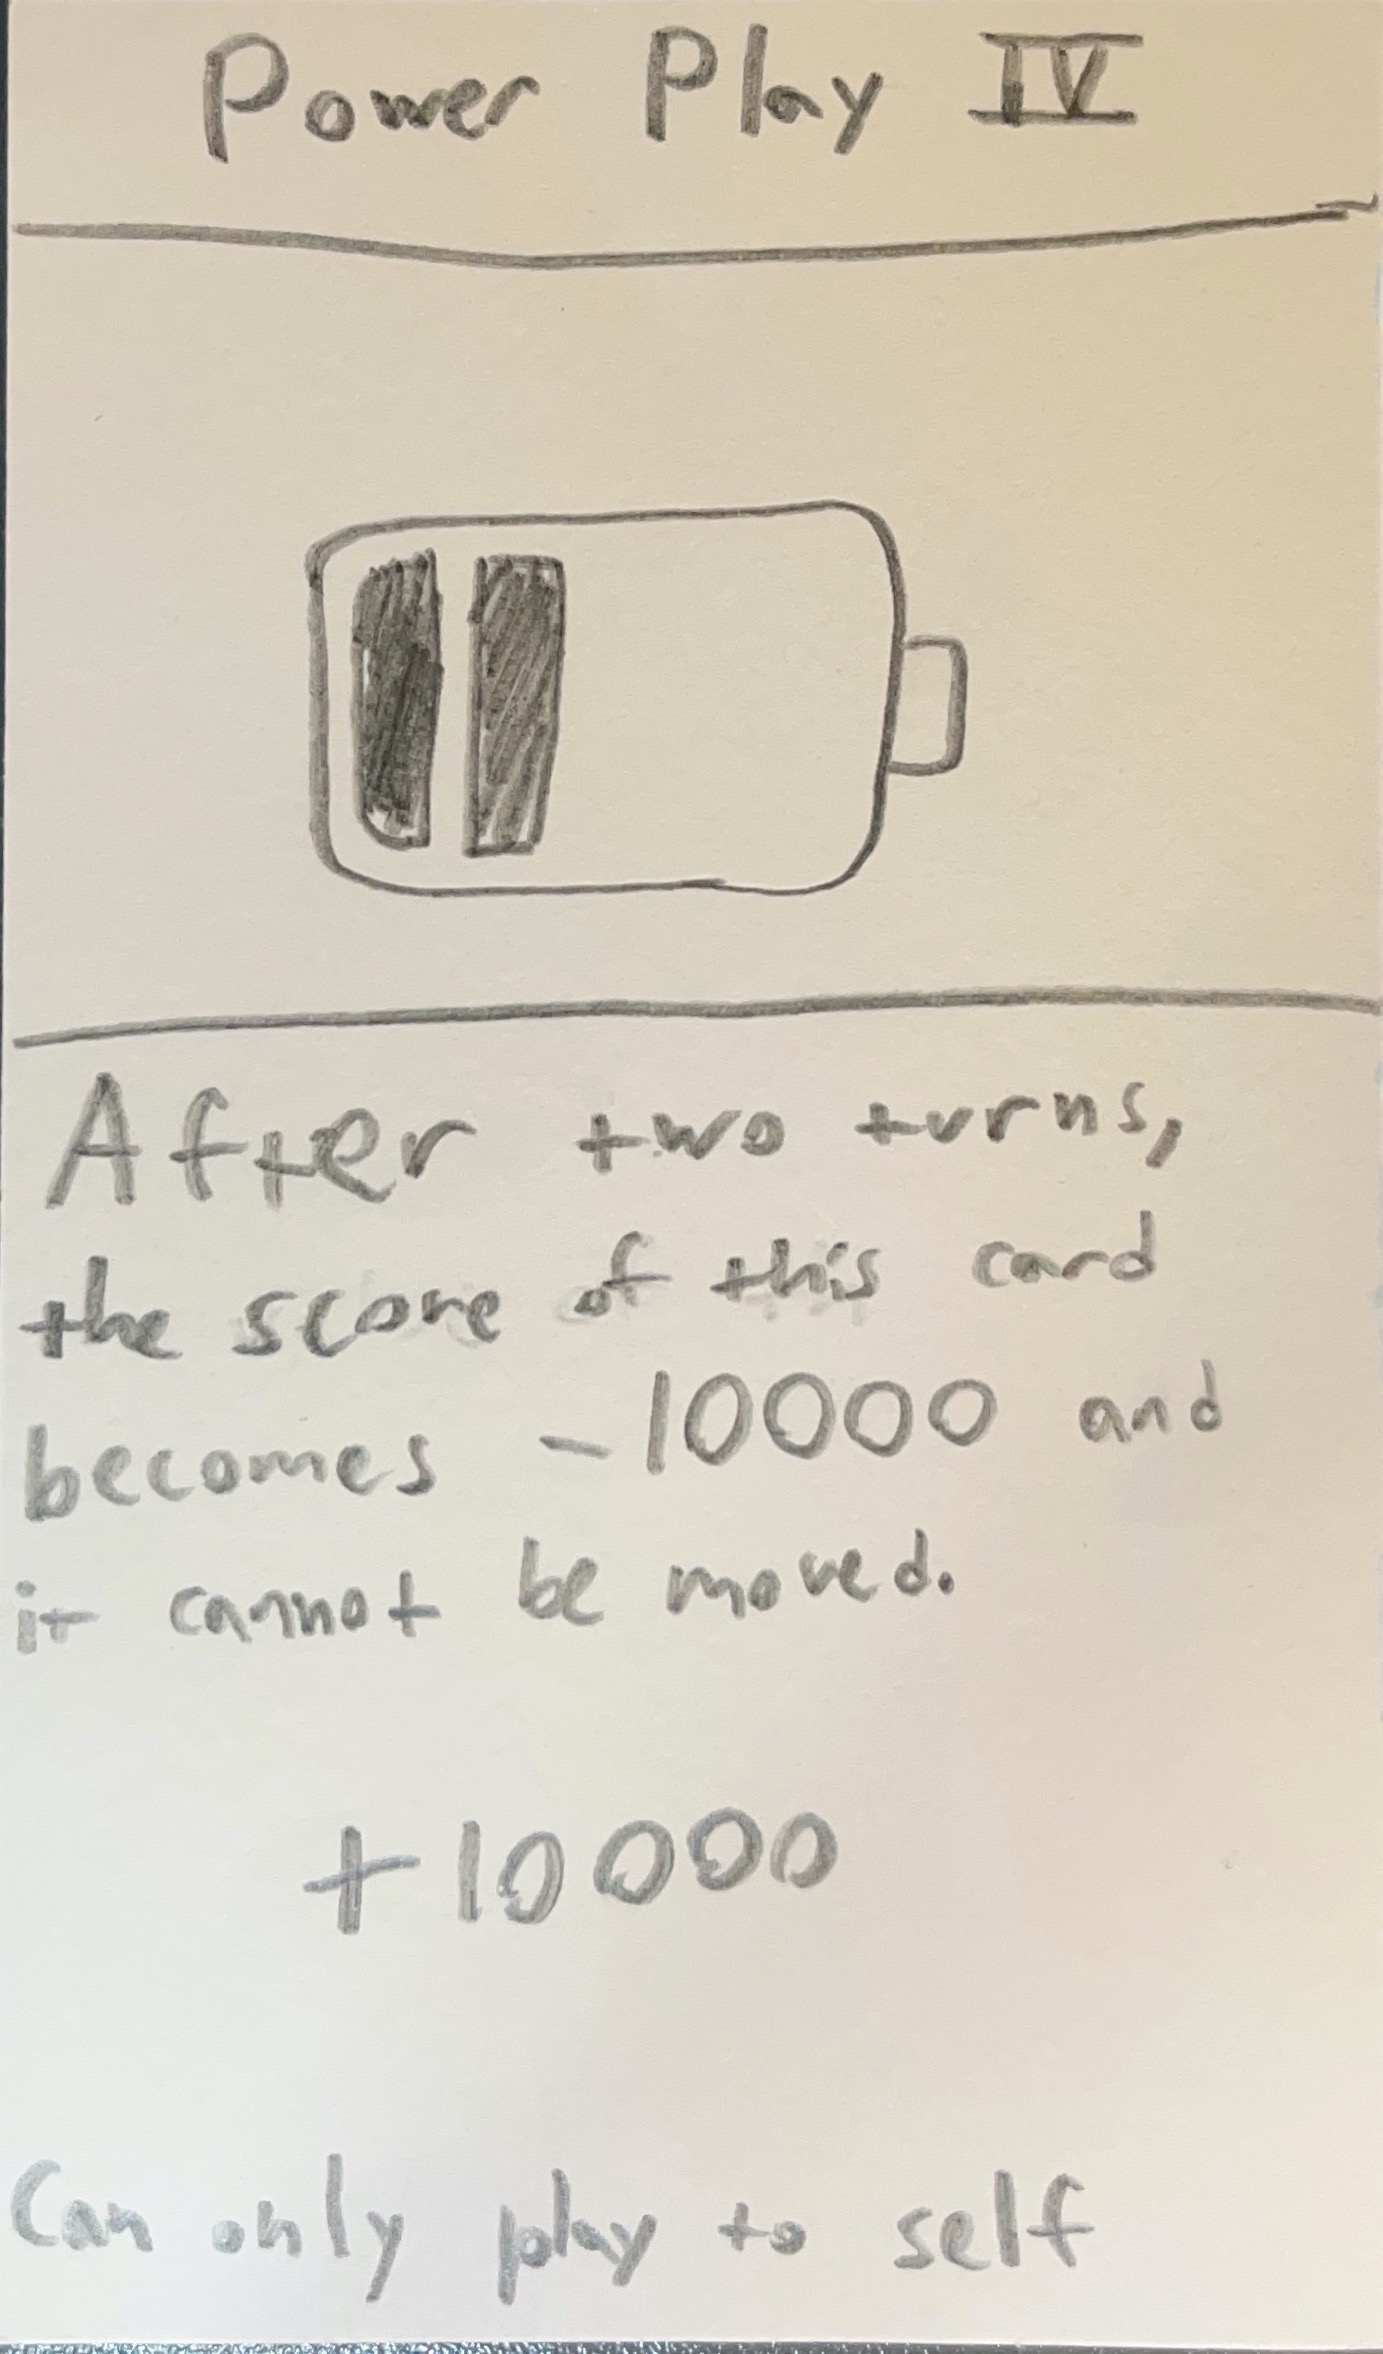 Power Play IV
After two turns,
the score of this card
becomes -10000 and
it cannot be moved.
+10000
Can only play to self